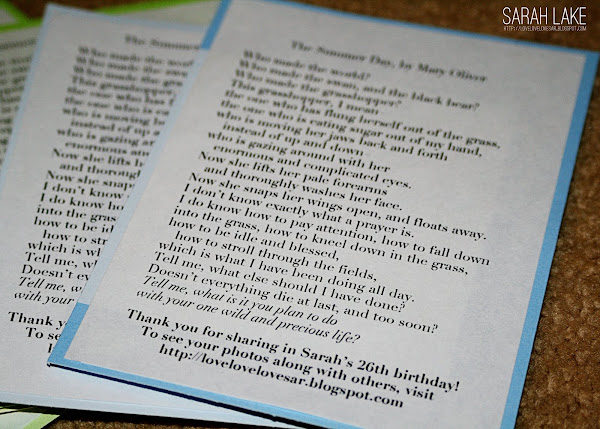 SARAH LAKE
HTTP://LOVELOVELOVESAR.BLOGSPOT.COM
The Summer Day, by Mary Oliver
Who made the world?
Who made the swan, and the black bear?
Who made the grasshopper?
This grasshopper, I mean
the one who has flung herself out of the grass,
the one who is eating sugar out of my hand,
who is moving her jaws back and forth
instead of up and down
who is gazing around with her
enormous and complicated eyes.
Now she lifts her pale forearms
and thoroughly washes her face.
Now she snaps her wings open, and floats away.
I don't know exactly what a prayer is.
I do know how to pay attention, how to fall down
into the grass, how to kneel down in the grass,
how to be idle and blessed,
how to stroll through the fields,
which is what I have been doing all day.
Tell me, what else should I have done?
Doesn't everything die at last, and too soon?
Tell me, what is it you plan to do
with your one wild and precious life?
Thank you for sharing in Sarah's 26th birthday!
To see your photos along with others, visit
http://lovelovelovesar.blogspot.com
The Summer
Who made the
Who made the
Who made the
This grasshopp
the one who has f
the one who is
who is moving
instead of up
who is gazing
enormous
Now she lifts her
and thorough
Now she snaps
I don't know
I do know how
into the grass
how to be idle
how to stroll
which is what
Tell me, what
Doesn't every
Tell me, what
with your one
Thank you
To see
http